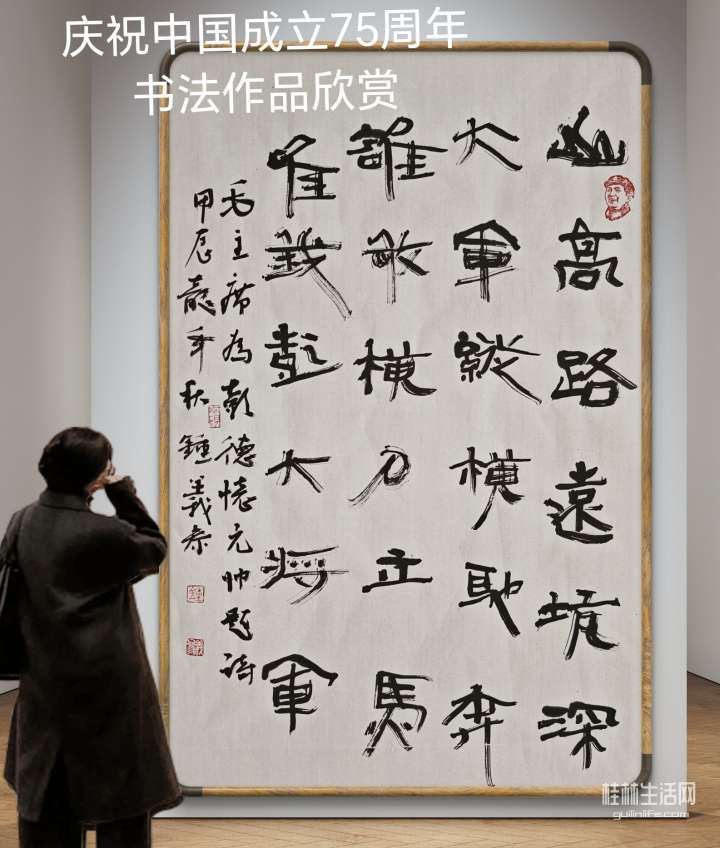 庆祝中国成立75周年
书法作品欣赏
山高路遠坑深
大軍縱橫馳奔
誰敢橫刀立馬
唯我彭大將軍
毛主席為彭德懷元帥題詩
甲辰龍年秋鍾義泰
桂林生活网
guilinlife.com